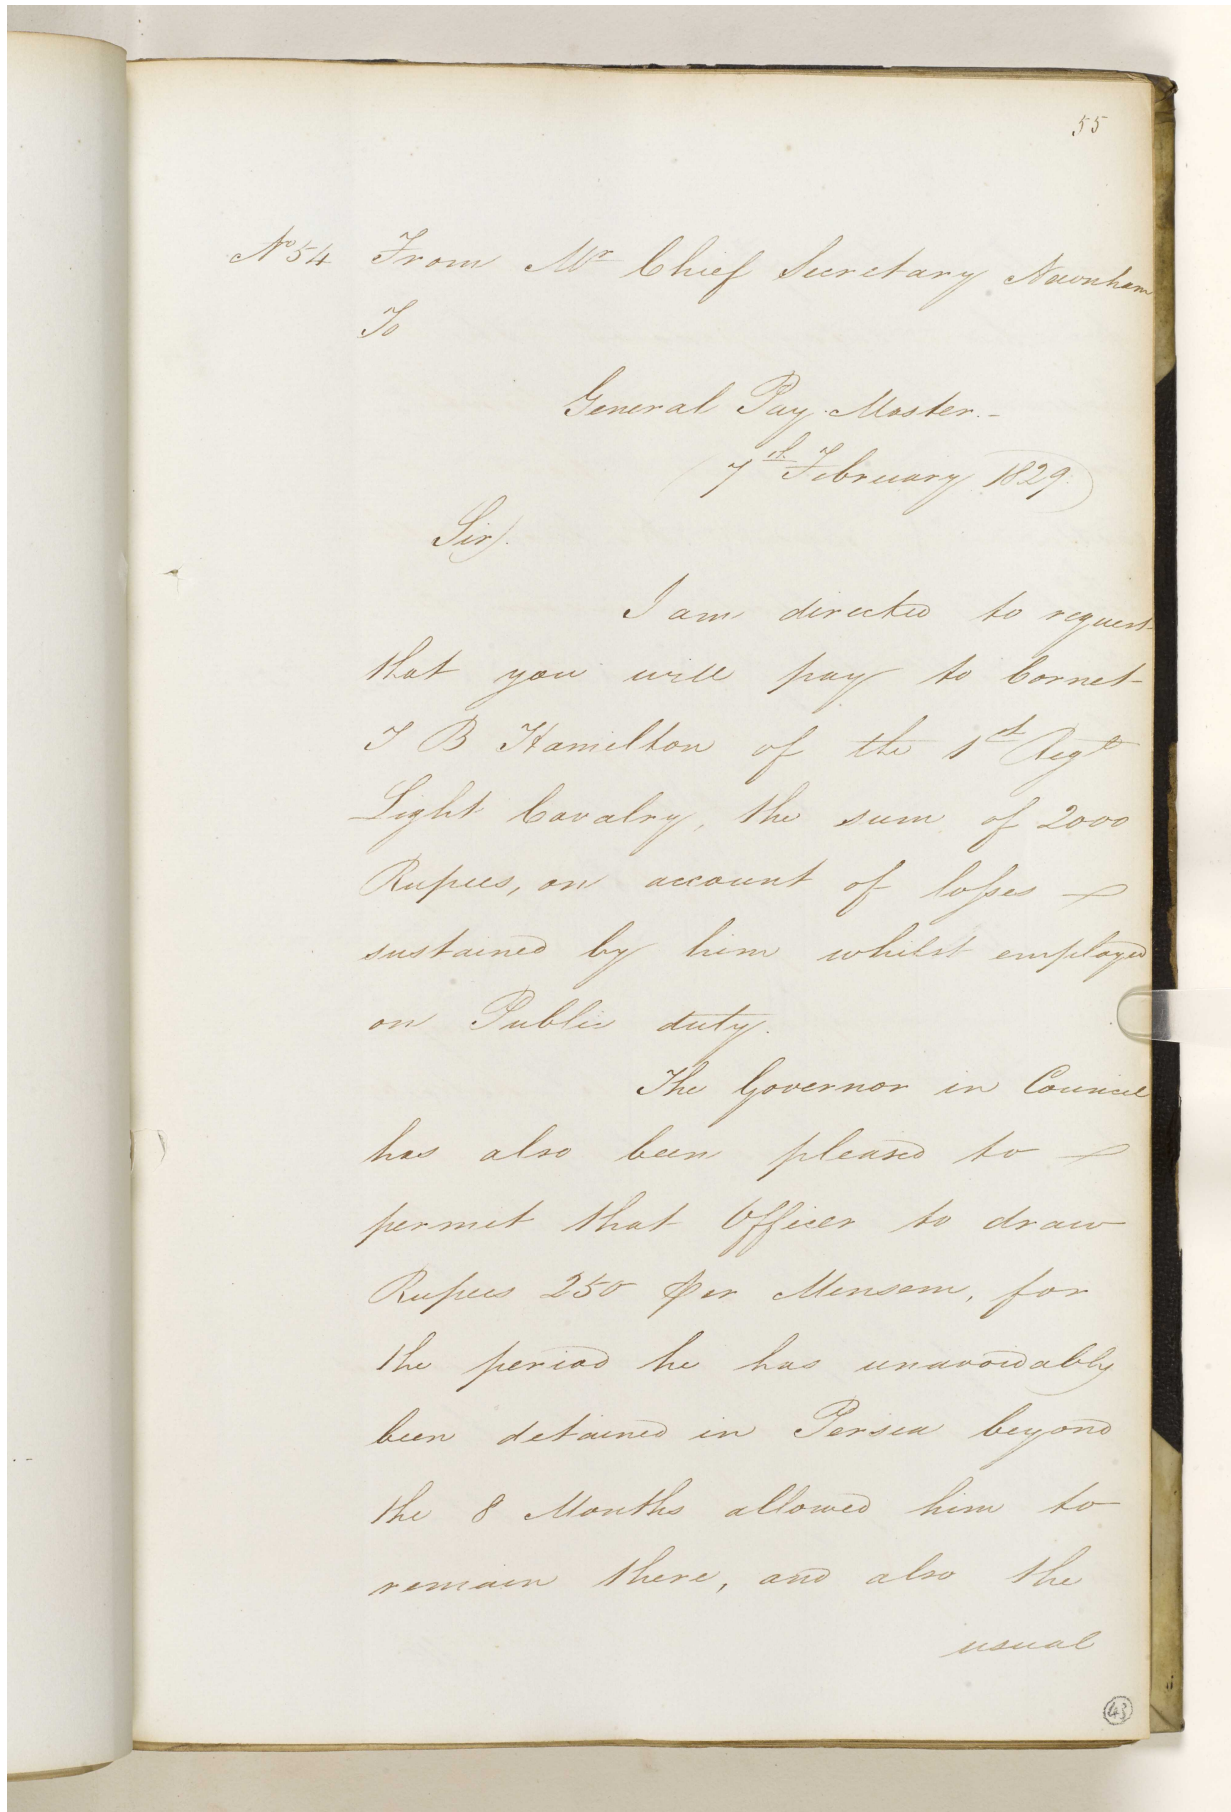 55
No 54 From Mr Chief Secretary Newnham
To
General Pay Master.-
7th February 1829.
Sir,
I am directed to request
that you will pay to Cornet
J B Hamilton of the 1st Regt
Light Cavalry, the sum of 2000
Rupees, on account of losses
sustained by him whilst employed
on Public duty.
The Governor in Council
has also been pleased to
permit that Officer to draw
Rupees 250 Per Mensem, for
the period he has unavoidably
been detained in Persia beyond
the 8 Months allowed him to
remain there, and also the
usual
43